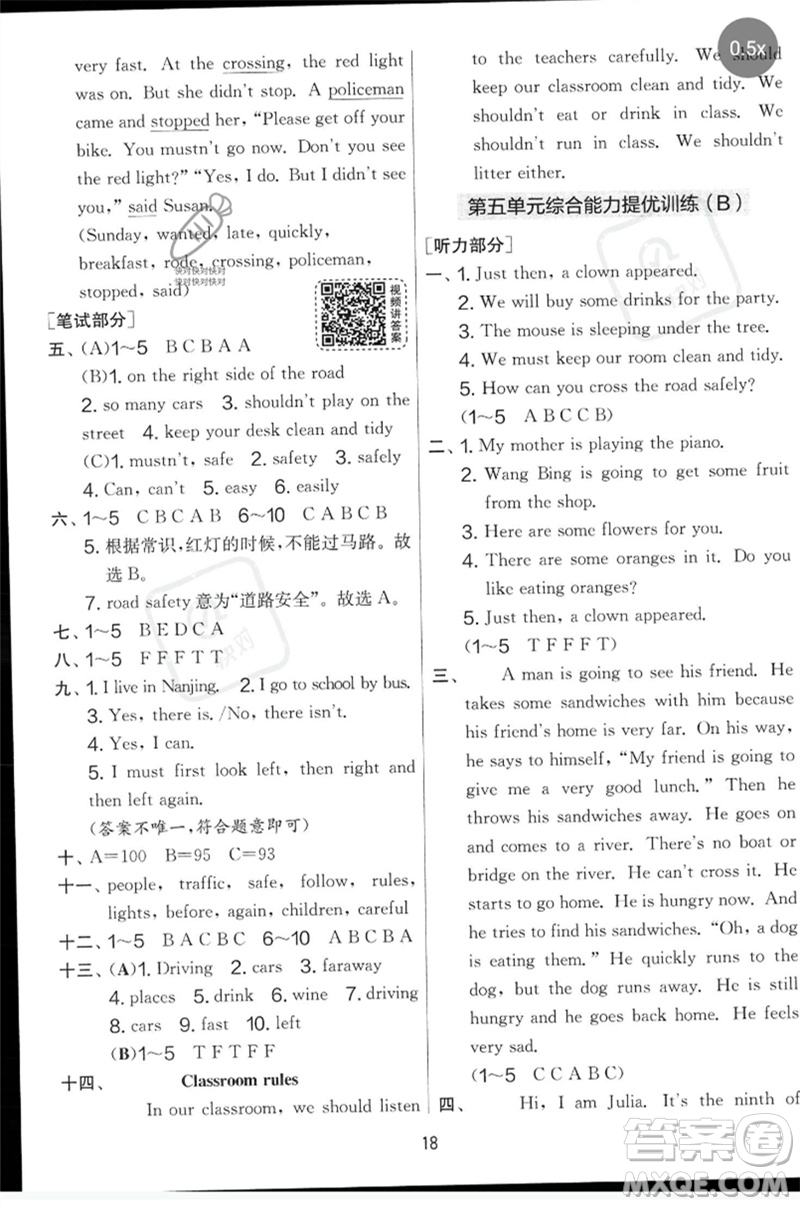 very fast. At the crossing, the red light
was on. But she didn't stop. A policeman
came and stopped her, “Please get off your
bike. You mustn't go now. Don't you see
the red light?” “Yes, I do. But I'm late,
too,” said Susan.
(Sunday, wanted, late, quickly,
breakfast, rode, crossing, policeman,
stopped, said)
快对快对快对
快对快对快对
视频讲答案
[笔试部分]
五、(A)1～5 B C B A A
(B)1. on the right side of the road
2. so many cars 3. shouldn't play on the
street 4. keep your desk clean and tidy
(C)1. mustn't, safe 2. safety 3. safely
4. Can, can't 5. easy 6. easily
六、1～5 C B C A B 6～10 C A B C B
5. 根据常识,红灯的时候,不能过马路。故
选 B。
7. road safety 意为“道路安全”。故选 A。
七、1～5 B E D C A
八、1～5 F F F T T
九、1. I live in Nanjing. 2. I go to school by bus.
3. Yes, there is. /No, there isn't.
4. Yes, I can.
5. I must first look left, then right and
then left again.
(答案不唯一,符合题意即可)
十、A=100 B=95 C=93
十一、people, traffic, safe, follow, rules,
lights, before, again, children, careful
十二、1～5 B A C B C 6～10 A C B B A
十三、(A)1. Driving 2. cars 3. faraway
4. places 5. drink 6. wine 7. driving
8. cars 9. fast 10. left
(B)1～5 T F T F F
十四、 Classroom rules
In our classroom, we should listen
to the teachers carefully. We should
keep our classroom clean and tidy. We
shouldn't eat or drink in class. We
shouldn't run in class. We shouldn't
litter either.
0.5x
第五单元综合能力提优训练(B)
[听力部分]
一、1. Just then, a clown appeared.
2. We will buy some drinks for the party.
3. The mouse is sleeping under the tree.
4. We must keep our room clean and tidy.
5. How can you cross the road safely?
(1～5 A B C C B)
二、1. My mother is playing the piano.
2. Wang Bing is going to get some fruit
from the shop.
3. Here are some flowers for you.
4. There are some oranges in it. Do you
like eating oranges?
5. Just then, a clown appeared.
(1～5 T F F F T)
三、 A man is going to see his friend. He
takes some sandwiches with him because
his friend's home is very far. On his way,
he says to himself, “My friend is going to
give me a very good lunch.” Then he
throws his sandwiches away. He goes on
and comes to a river. There's no boat or
bridge on the river. He can't cross it. He
starts to go back. He is hungry now. And
he tries to find his sandwiches. “Oh, a dog
is eating them.” He quickly runs to the
dog, but the dog runs away. He is still
hungry and goes back home. He feels
very sad.
(1～5 C C A B C)
四、 Hi, I am Julia. It's the ninth of
18
快对
答案卷
MXQE.COM